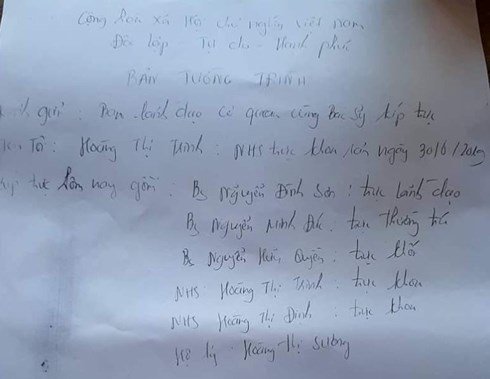 Cộng hòa xã hội chủ nghĩa việt nam
Độc lập - Tự do - Hạnh phúc
BẢN TƯỜNG TRÌNH
gửi : Ban lãnh đạo cơ quan cùng Bác sỹ kíp trực
Tên Tôi : Hoàng Thị Trinh : NHS trực khoa sản ngày 30/6/2019
kíp trực hôm nay gồm : Bs Nguyễn Đình Sơn : trực lãnh đạo
Bs Nguyễn Minh Đức : trực thường trú
Bs Nguyễn Hữu Quyền : trực khối
NHS : Hoàng Thị Trinh : trực khoa
NHS Hoàng Thị Dinh : trực khoa
Hộ lý : Hoàng Thị Sương